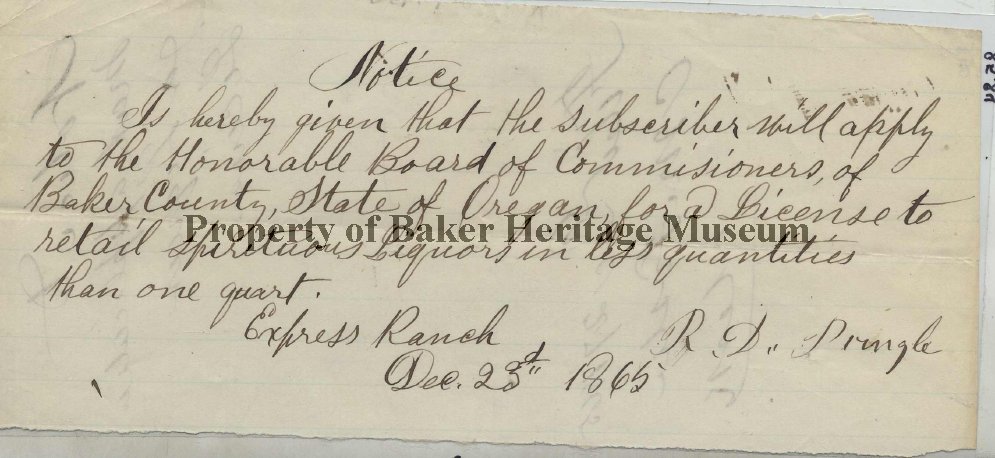 Notice
Is hereby given that the subscriber will apply
to the Honorable Board of Commisioners, of
Baker County, State of Oregan, for a License to
Property of Baker Heritage Museum
retail spiretuous Liquors in less quantities
than one quart.
Express Ranch R. D. Pringle
Dec. 23d 1865